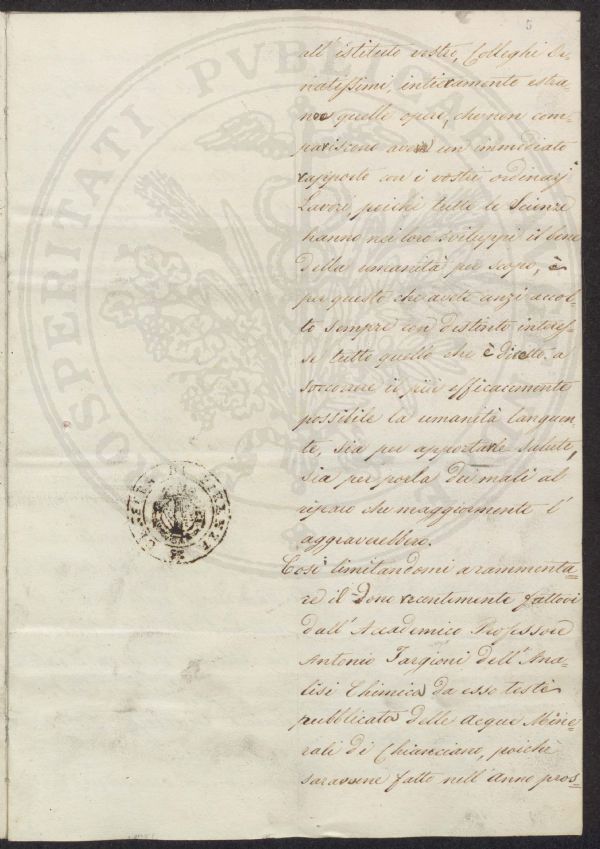 5
all' istituto vostro, Colleghi Or-
natissimi, intieramente estra-
nee quelle opere, che non com-
pariscono avere un immediato
rapporto con i vostri ordinarj
Lavori, poichè tutte le Scienze
hanno nei loro sviluppi il bene
della umanità per scopo, è
per questo che avete anzi accol-
to sempre con distinto interes-
se tutto quello che è diretto a
soccorrere il più efficacemente
possibile la umanità languen-
te, sia per apportarle Salute,
sia per porla dei mali al
riparo che maggiormente l'
aggraverebbero.
Così limitandomi a rammenta=
re il Dono recentemente fattovi
dall' Accademico Professore
Antonio Targioni dell' Ana-
lisi Chimica da esso testè
pubblicata delle Acque Mine-
rali di Chianciano, poichè
saravvene fatto nell' Anno pros=
PROSPERITATI PUBLICAE